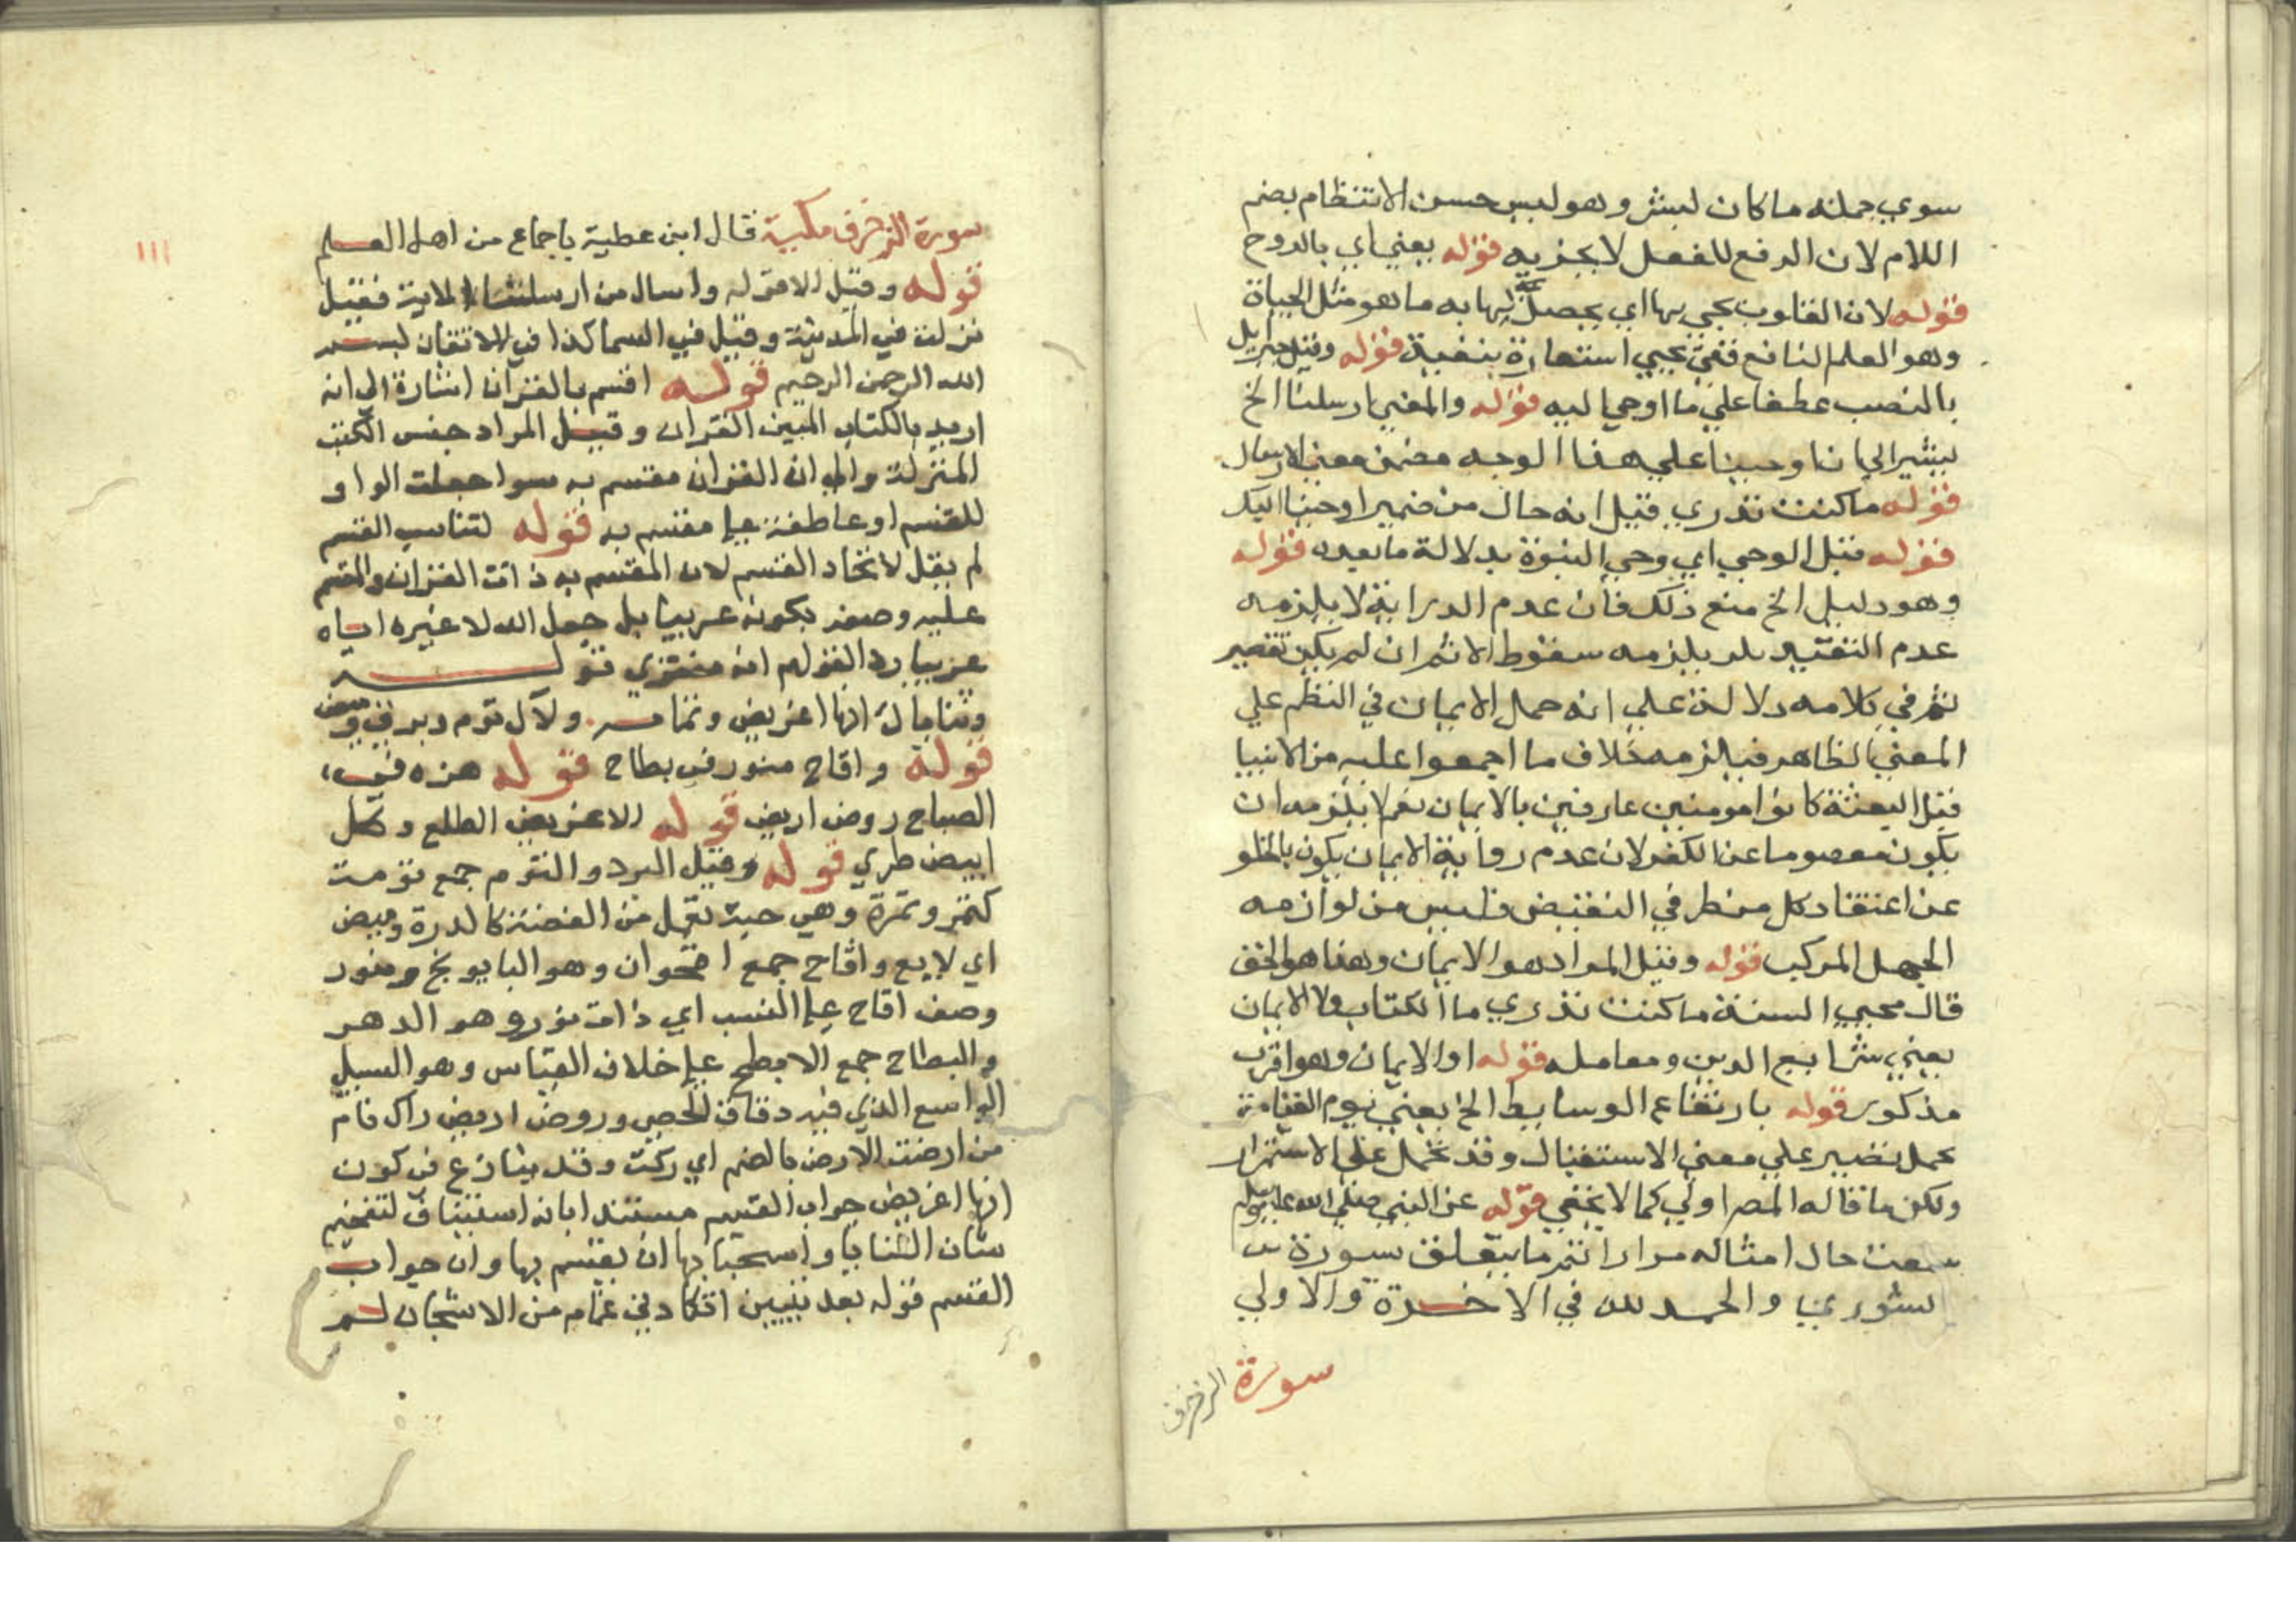 سوي جملة ما كان لبشر وهو ليس حسن الانتظام بضم
اللام لان الرفع للفعل لا يجزيه قوله يعني اي بالروح
قوله لان القلوب يحي بها اي يحصل لها به ما هو مثل الحياة
وهو العلم النافع ففي يحيي استعارة بتغية قوله وقيل جبريل
بالنصب عطفا علي ما اوحي اليه قوله والمعني ارسلنا الخ
ليشير الي ان اوحينا علي هذا الوجه مضمن معني الارسال
قوله ما كنت تدري قيل انه حال من ضمير اوحينا اليك
قوله قبل الوحي اي وحي النبوة بدلالة ما بعده قوله
وهو دليل الخ منع ذلك فان عدم الدراية لا يلزمه
عدم التقييد بل يلزمه سقوط الاثم ان لم يكن تقصير
ثم في كلامه دلالة علي انه حمل الايمان في النظم علي
المعني الظاهر فيلزمه خلاف ما اجمعوا عليه من الانبيا
قبل البعثة كانوا مومنين عارفين بالايمان نعم لا يلزمه ان
يكون معصوما عن الكفر لان عدم رواية الايمان يكون بالخلو
عن اعتقاد كل من طرفي النقيض فليس من لوازمه
الجهل المركب قوله وقيل المراد هو الايمان وهذا هو الحق
قال محيي السنة ما كنت تدري ما الكتاب ولا الايمان
يعني شرايع الدين ومعامله قوله او الايمان وهو اقرب
مذكور قوله بارتفاع الوسايط الخ يعني يوم القيامة
يحمل تصير علي معني الاستقبال وقد يحمل علي الاستمرار
ولكن ما قاله المصر اولي كما لا يخفي قوله عن النبي صلي الله عليه وسلم
سمعت حال امثاله مرارا تم ما يتعلق بسورة
شوري والحمد لله في الاخرة والاولي
سورة الزخرف
١١١
سورة الزخرف مكية قال ابن عطية باجماع من اهل العلم
قوله وقيل الا قوله واسال من ارسلنا الاية فقيل
نزلت في المدينة وقيل في السما كذا في الاتقان بسم
الله الرحمن الرحيم قوله اقسم بالقران اشارة الي انه
اريد بالكتاب المبين القران وقيل المراد جنس الكتب
المنزلة والي ان القران مقسم به سوا جعلت الواو
للقسم او عاطفة علي مقسم به قوله لتناسب القسم
لم يقل لاتحاد القسم لان المقسم به ذات القران والمقسم
عليه وصفه بكونه عربيا بل جعل الله لا غيره اياه
عربيا ردا لقولهم انه مفتري قوله
وثناياك انها اغريض وتمامه ولآل توم وبرق وميض
قوله واقاح منور في بطاح قوله هزه في
الصباح روض اريض قوله الاغريض الطلع وكل
ابيض طري قوله وقيل البرد والتوم جمع تومة
كتمر وتمرة وهي حبة تعمل من الفضة كالدرة وميض
اي لايع واقاح جمع اقحوان وهو البابونج ومنور
وصف اقاح علي النسب اي ذات نور وهو الدهر
والبطاح جمع الابطح علي خلاف القياس وهو السبيل
الواسع الذي فيه دقاق الحصي وروض اريض زاك نام
من ارضت الارض بالضم اي زكت وقد ينازع في كون
انها اغريض جواب القسم مستندا بانه استيناف لتفخيم
شان الثنايا واستحقاقها ان يقسم بها وان جواب
القسم قوله بعد بيتين اتكا دني غمام من الاشجان لم